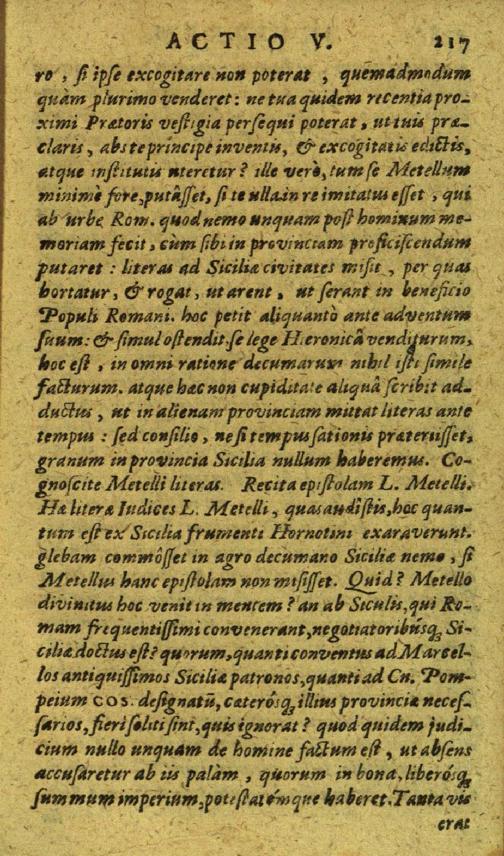 ACTIO V. 217
ro, si ipse excogitare non poterat, quemadmodum
quàm plurimo venderet: ne tua quidem recentia pro-
ximi Prætoris vestigia persequi poterat, ut tuis præ-
claris, abs te principe inventis, & excogitatis edictis,
atque institutis uteretur? ille verò, tum se Metellum
minimè fore, putâsset, si te ulla in re imitatus esset, qui
ab urbe Rom. quod nemo unquam post hominum me-
moriam fecit, cum sibi in provinciam proficiscendum
putaret: literas ad Siciliæ civitates misit, per quas
hortatur, & rogat, ut arent, ut serant in beneficio
Populi Romani. hoc petit aliquantò ante adventum
suum: & simul ostendit se lege Hieronicâ venditurum,
hoc est, in omni ratione decumarum nihil isti simile
facturum. atque hæc non cupiditate aliquâ scribit ad-
ductus, ut in alienam provinciam mittat literas ante
tempus: sed consilio, ne si tempus sationis præteriisset,
granum in provincia Sicilia nullum haberemus. Co-
gnoscite Metelli literas. Recita epistolam L. Metelli.
Hæ literæ Iudices L. Metelli, quas audistis, hoc quan-
tum est ex Sicilia frumenti Hornotini exaraverunt.
glebam commôsset in agro decumano Siciliæ nemo, si
Metellus hanc epistolam non misisset. Quid? Metello
divinitus hoc venit in mentem? an ab Siculis, qui Ro-
mam frequentissimi convenerant, negotiatoribúsq; Si-
ciliæ doctus est? quorum, quanti conventus ad Marcel-
los antiquissimos Siciliæ patronos, quanti ad Cn. Pom-
peium COS. designatū, cæterósq; illius provinciæ neces-
sarios, fieri soliti sint, quis ignorat? quod quidem judi-
cium nullo unquam de homine factum est, ut absens
accusaretur ab iis palàm, quorum in bona, liberósq;
summum imperium, potestatémque haberet. Tanta vis
erat